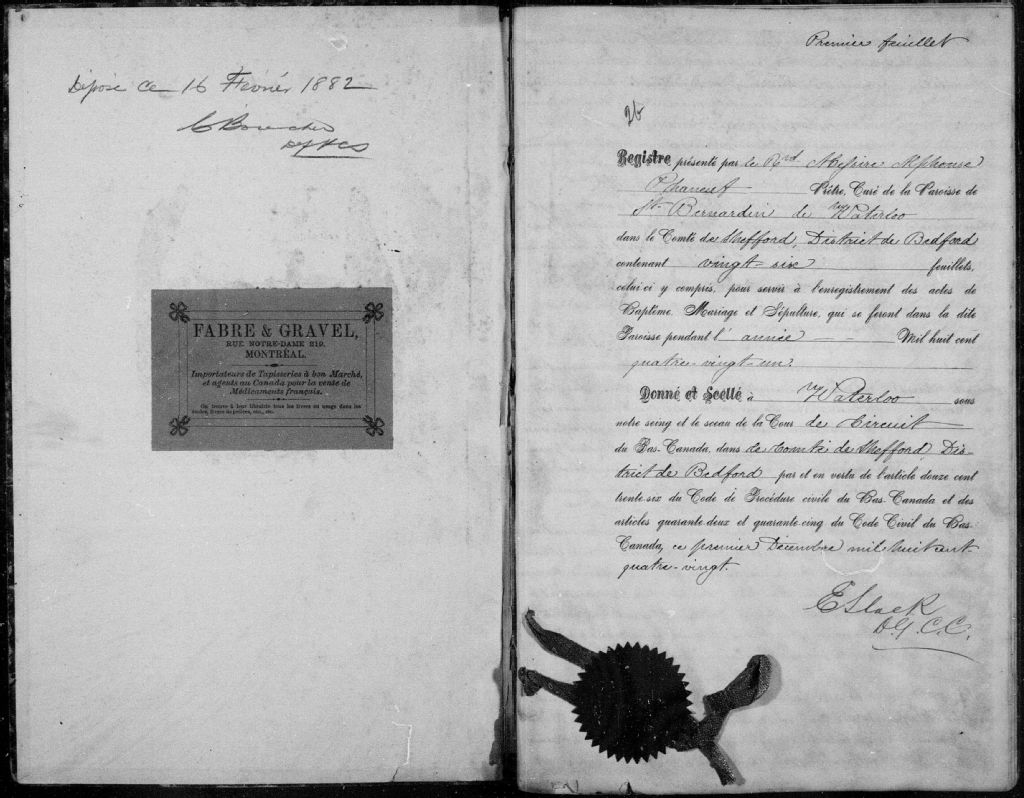 Déposé ce 16 Février 1882
Boucher
FABRE & GRAVEL,
RUE NOTRE-DAME 219,
MONTRÉAL.
Importateurs de Tapisseries à bon Marché,
et agents au Canada pour la vente de
Médicaments français.
On trouve à leur librairie tous les livres en usage dans les
écoles, livres de prières, etc., etc.
Premier feuillet
26
Registre présenté par le Rvd Messire Alphonse
Phaneuf Prêtre, Curé de la Paroisse de
St. Bernardin de Waterloo
dans le Comté de Shefford, District de Bedford
contenant vingt-six feuillets,
celui-ci y compris, pour servir à l'enregistrement des actes de
Baptême, Mariage et Sépulture, qui se feront dans la dite
Paroisse pendant l'année Mil huit cent
quatre-vingt-un.
Donné et Scellé à Waterloo sous
notre seing et le sceau de la Cour de Circuit
du Bas-Canada, dans le Comté de Shefford Dis-
trict de Bedford par et en vertu de l'article douze cent
trente-six du Code de Procédure civile du Bas-Canada et des
articles quarante-deux et quarante-cinq du Code Civil du Bas-
Canada, ce premier Décembre mil huit cent
quatre-vingt.
E Slack
D.G.C.C.